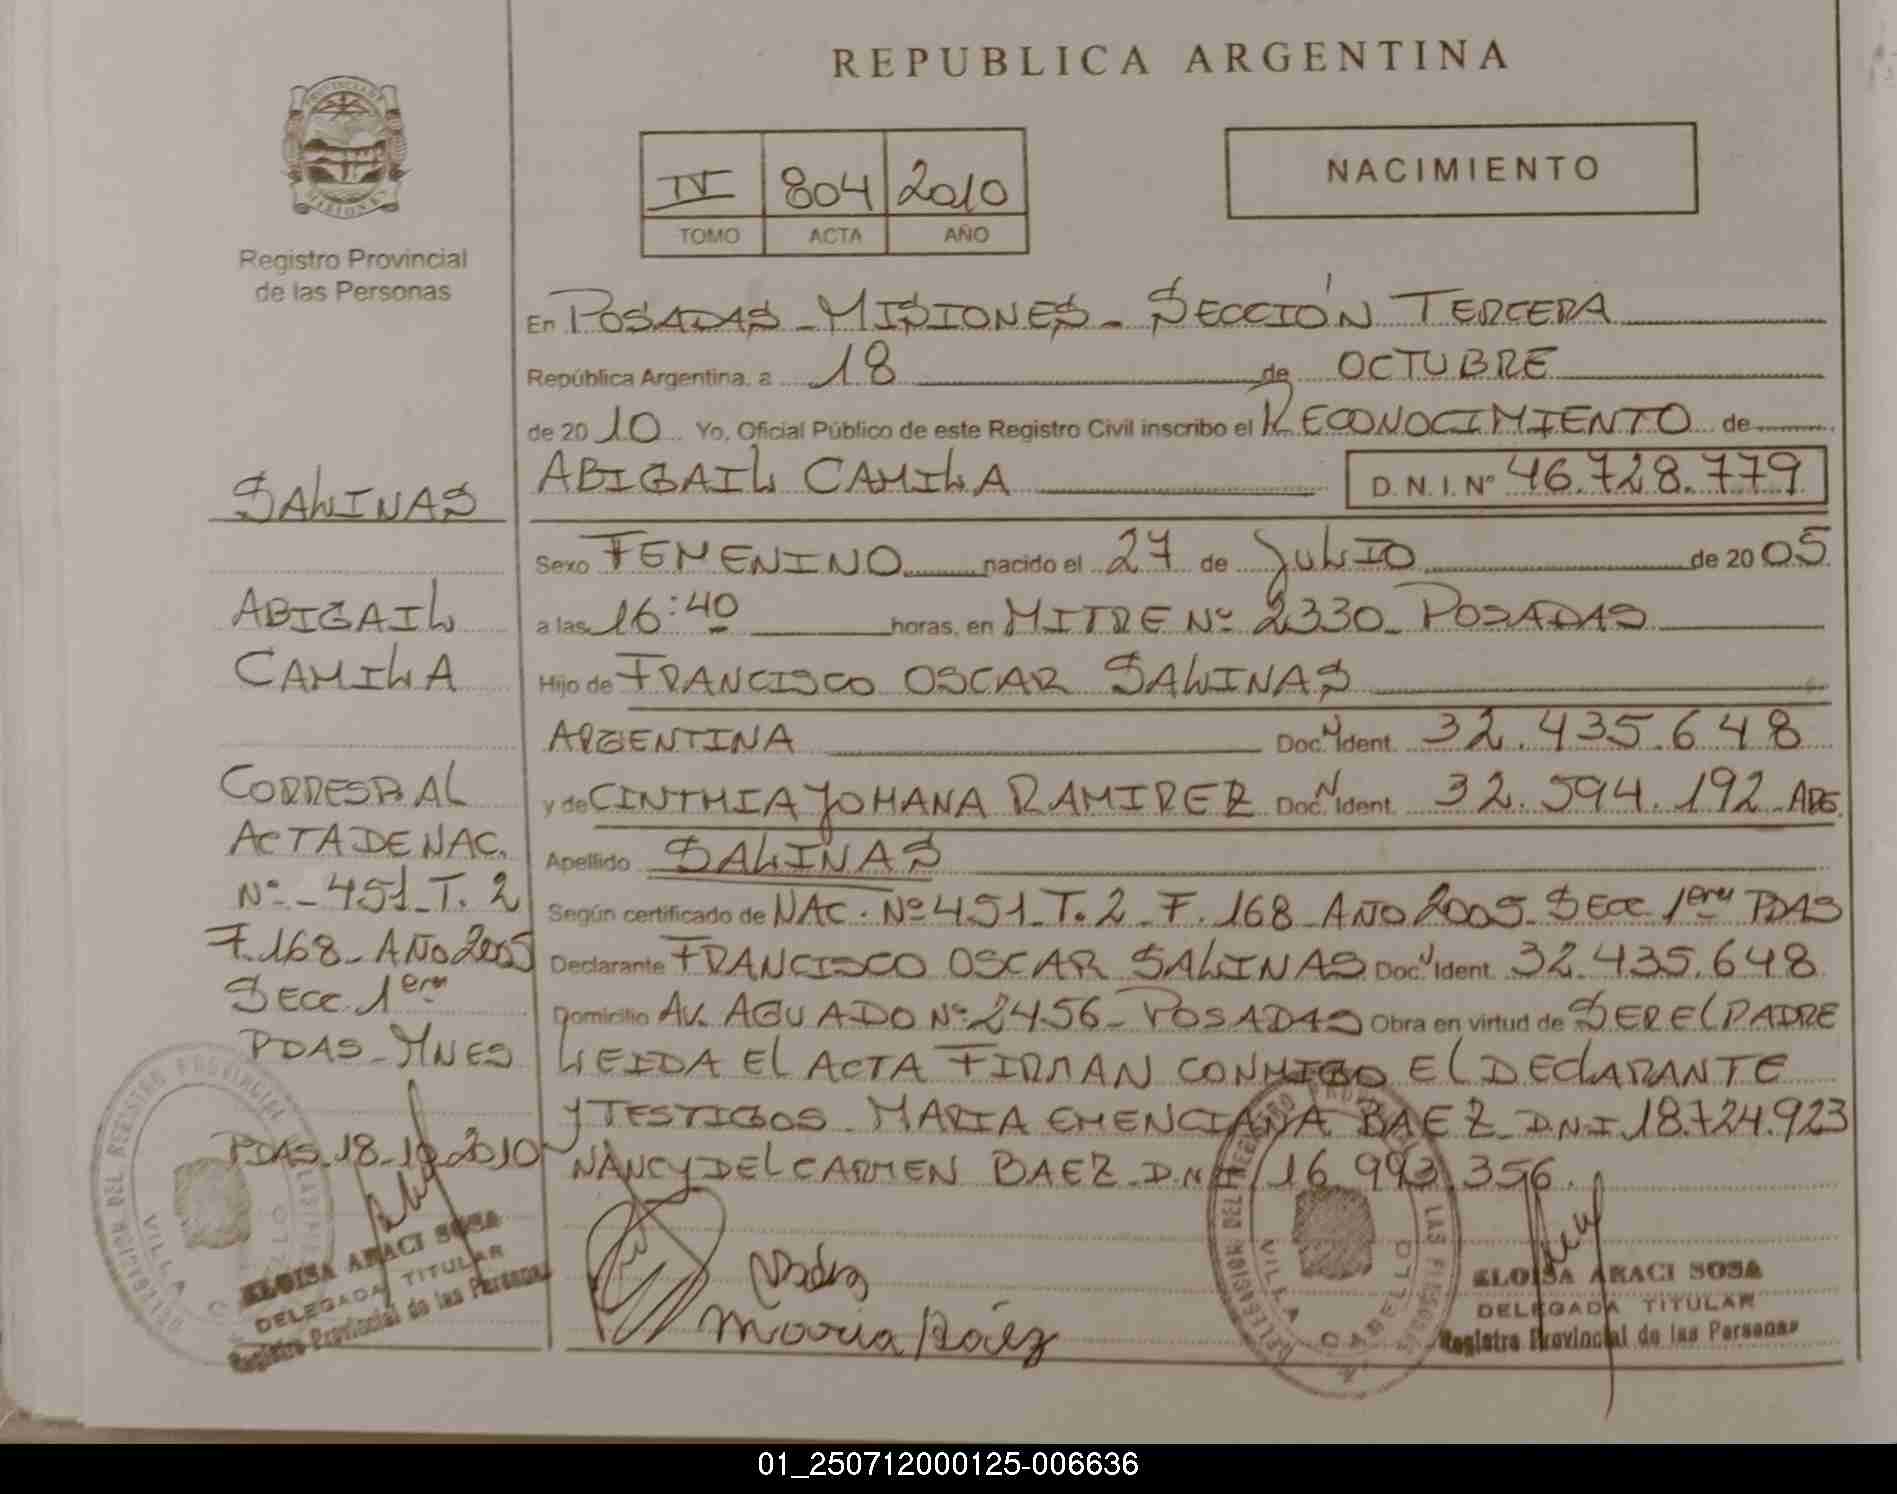 REPUBLICA ARGENTINA
PROVINCIA DE MISIONES
Registro Provincial
de las Personas
IV 804 2010
TOMO ACTA AÑO
NACIMIENTO
En POSADAS - MISIONES - SECCIÓN TERCERA
República Argentina, a 18 de OCTUBRE
de 2010 Yo, Oficial Público de este Registro Civil inscribo el RECONOCIMIENTO de
ABIGAIL CAMILA D.N.I. Nº 46.728.779
Sexo FEMENINO nacido el 27 de JULIO de 2005
a las 16:40 horas, en MITRE Nº 2330 - POSADAS
Hijo de FRANCISCO OSCAR SALINAS
ARGENTINA Doc. N Ident. 32.435.648
y de CINTHIA JOHANA RAMIREZ Doc. N Ident. 32.594.192 - ARG.
Apellido SALINAS
Según certificado de NAC. Nº 451 - T. 2 - F. 168 - AÑO 2005 - SECC 1era PDAS
Declarante FRANCISCO OSCAR SALINAS Doc. N Ident. 32.435.648
Domicilio AV. AGUADO Nº 2456 - POSADAS Obra en virtud de SER EL PADRE
LEIDA EL ACTA FIRMAN CONMIGO EL DECLARANTE
Y TESTIGOS - MARIA EMENCIANA BAEZ - D.N.I. 18.724.923
NANCY DEL CARMEN BAEZ - D.N.I. 16.993.356.
SALINAS
ABIGAIL
CAMILA
CORRESP. AL
ACTA DE NAC.
Nº - 451 - T. 2
F. 168 - AÑO 2005
SECC. 1era
PDAS - MNES
PDAS - 18-10-2010
ELOISA ARACI SOSA
DELEGADA TITULAR
Registro Provincial de las Personas
María Báez
ELOISA ARACI SOSA
DELEGADA TITULAR
Registro Provincial de las Personas
DELEGACION DEL REGISTRO PROVINCIAL DE LAS PERSONAS
VILLA CABELLO
01_250712000125-006636